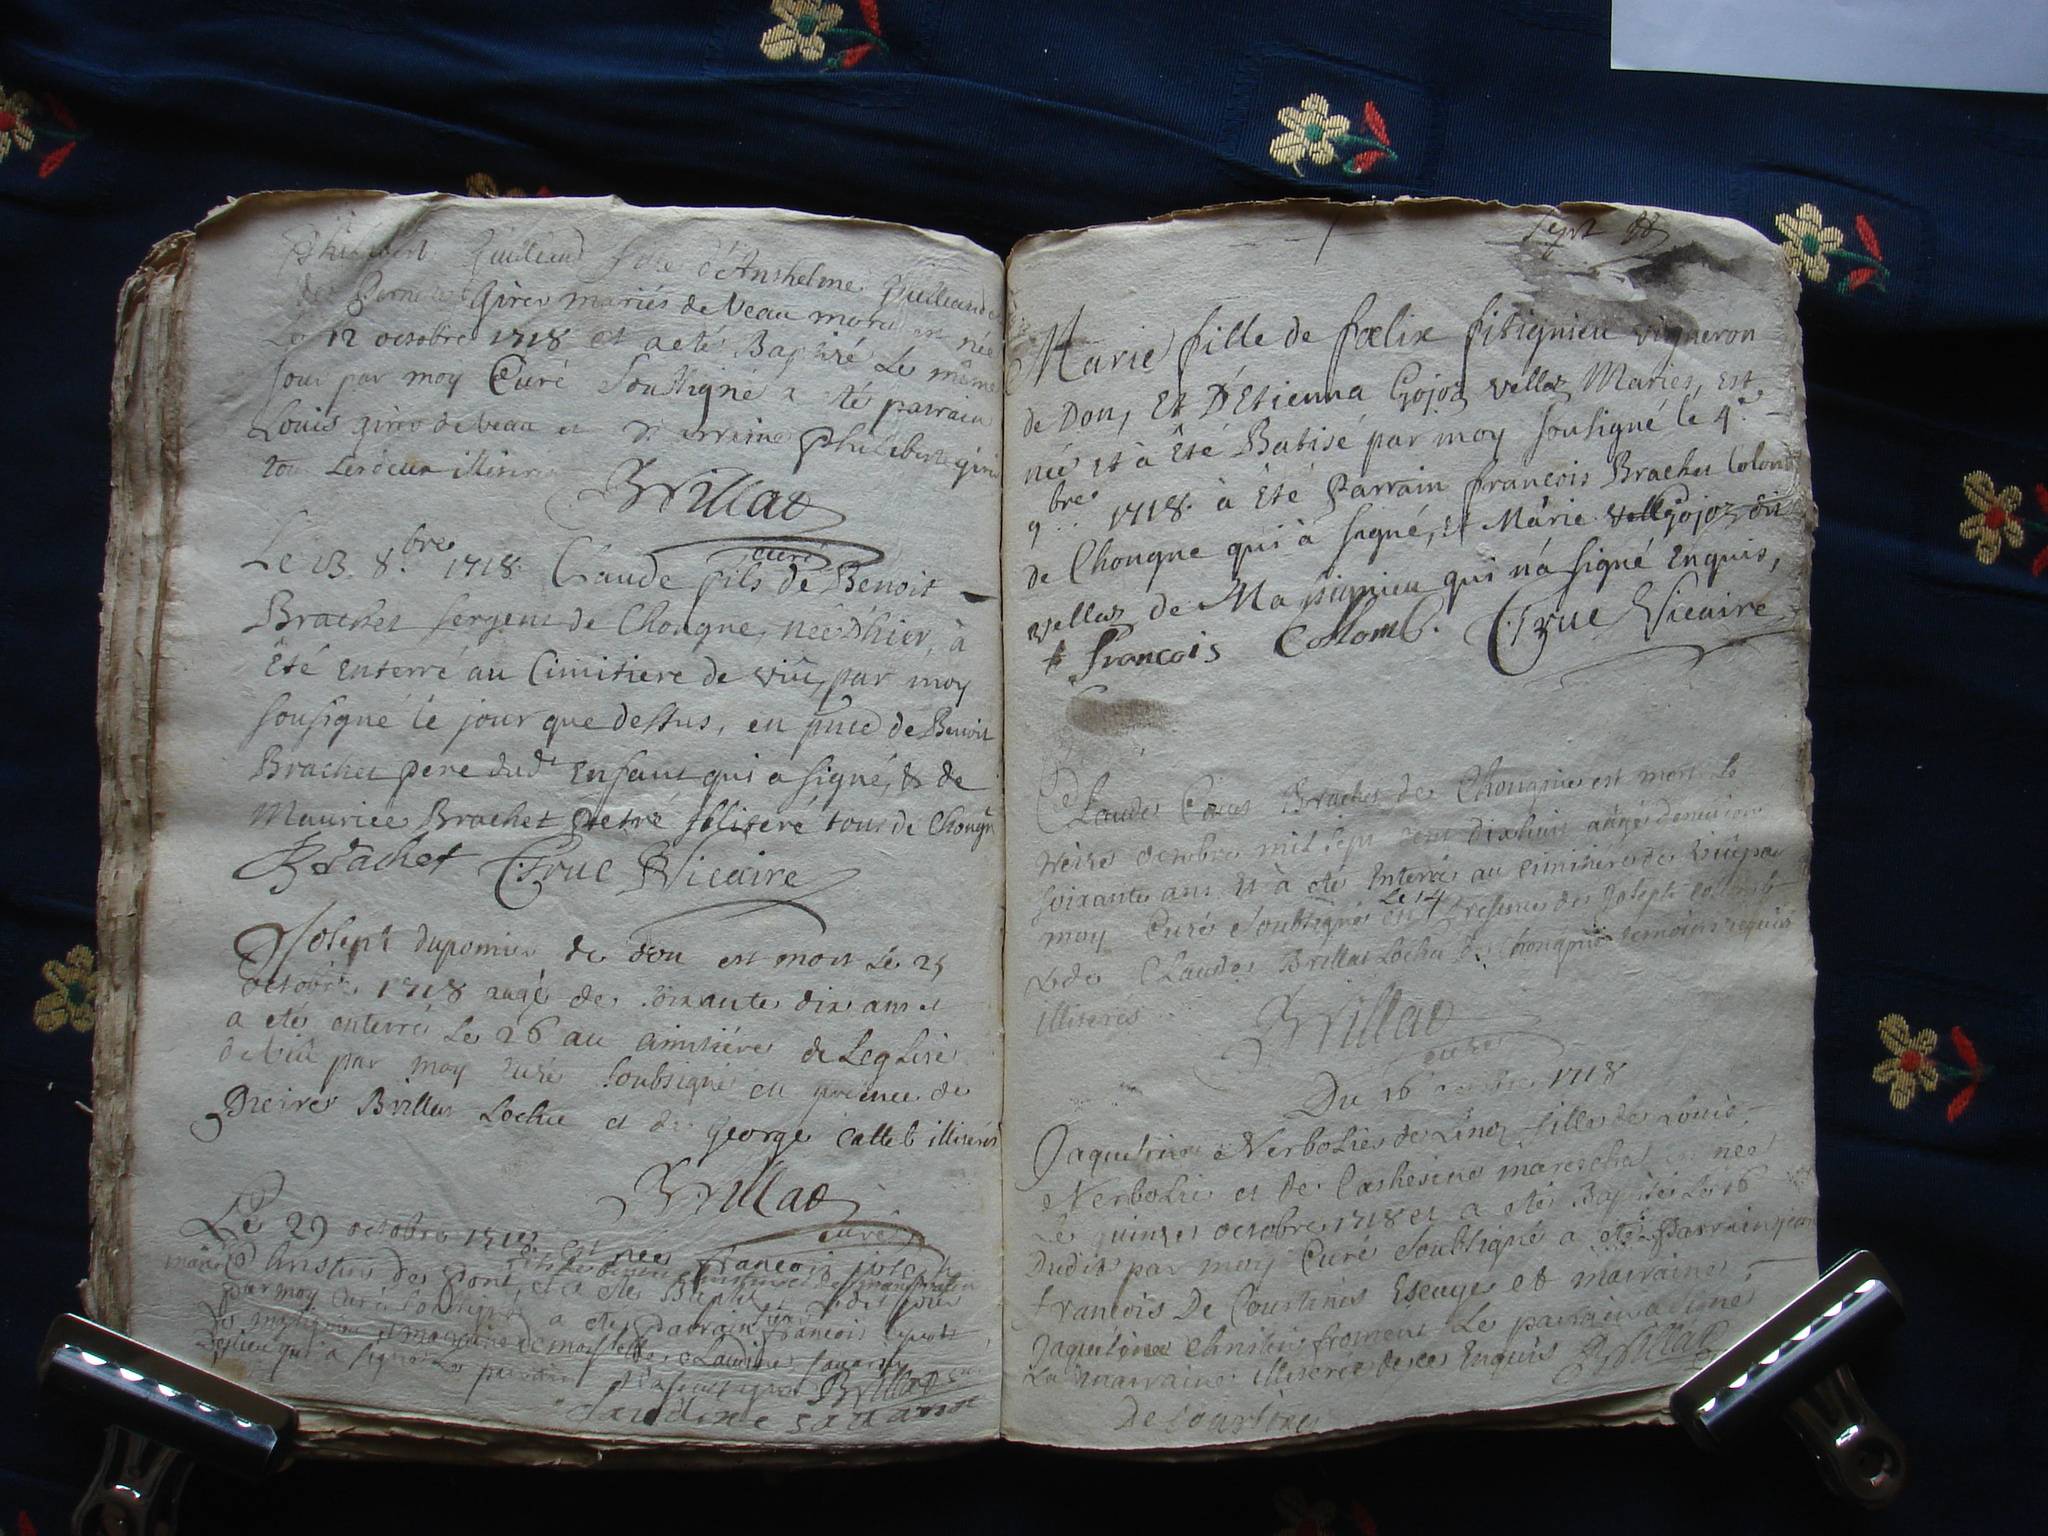 fille d'Anshelme
Girer mariés de Veau mora est née
Le 12 octobre 1718 et a eté Baptisé Le même
Jour par moy Curé Soussigné a eté parrain
Louis girer de veau et marraine Philiberte
tous Lesdeux illiteré
Brillat
curé
Le 13. 8.bre 1718. Claude fils de Benoit
Brachet sergent de Chongne, neé d'hier, à
Eté Enterré au Cimitiere de viû, par moy
sousigné le jour que dessus, en pnce de Benoit
Brachet pere dudt Enfant qui a signé, & de
Maurice Brachet illiteré tous de Chongn
Brachet Cruc Vicaire
Joseph duponier de don est mort Le 25
octobre 1718 aagé de soixante dix ans et
a eté enterré Le 26 au cimitiére de Leglise
de Viû par moy curé soubsigné en presence de
Pierre Brillat Lochu et de george Callet illiterés
Brillat
curé
Le 29 octobre est neé francois
par moy Curé a eté parrain francois
et marraine Claudine
qui a signé Le parrain
Brillat curé
claudine
Sept
Marie fille de fœlix fitignieu vigneron
de Don, Et D'Etienna Gojoz vellaz Mariés, Est
neé et à Eté Batisé par moy sousigné le 4e
9bre 1718. à Eté Parrain francois Brachet Colomb
de Chongne qui à signé, et Marie Gojoz dit
vellaz de Massignieu qui n'a signé Enquis,
francois Collomb. Cruc Vicaire
Claude Brachet de Chongnie est mort Le
treize octobre mil sept cent dixhuit aagé denviron
soixante ans et à eté Enterré au cimitiére de Viû par
moy Curé soubsigné Le 14 en presence de Joseph collomb
& de Claude Brillat Lochu de Chongnie temoins requis
illiterés
Brillat
curé
Du 16 octobre 1718
Jaqueline Nerbolier de Linoz fille de Louis
Nerbolié et de Catherine mareschal est née
Le quinze octobre 1718 et a eté Baptisée Le 16
Dudit par moy Curé soubsigné a eté Parrain jean
francois De Courtines Escuyer et marraine
Jaqueline Christin froment Le parrain a signé
La marraine illiterée de ce Enquis Brillat
De Courtines